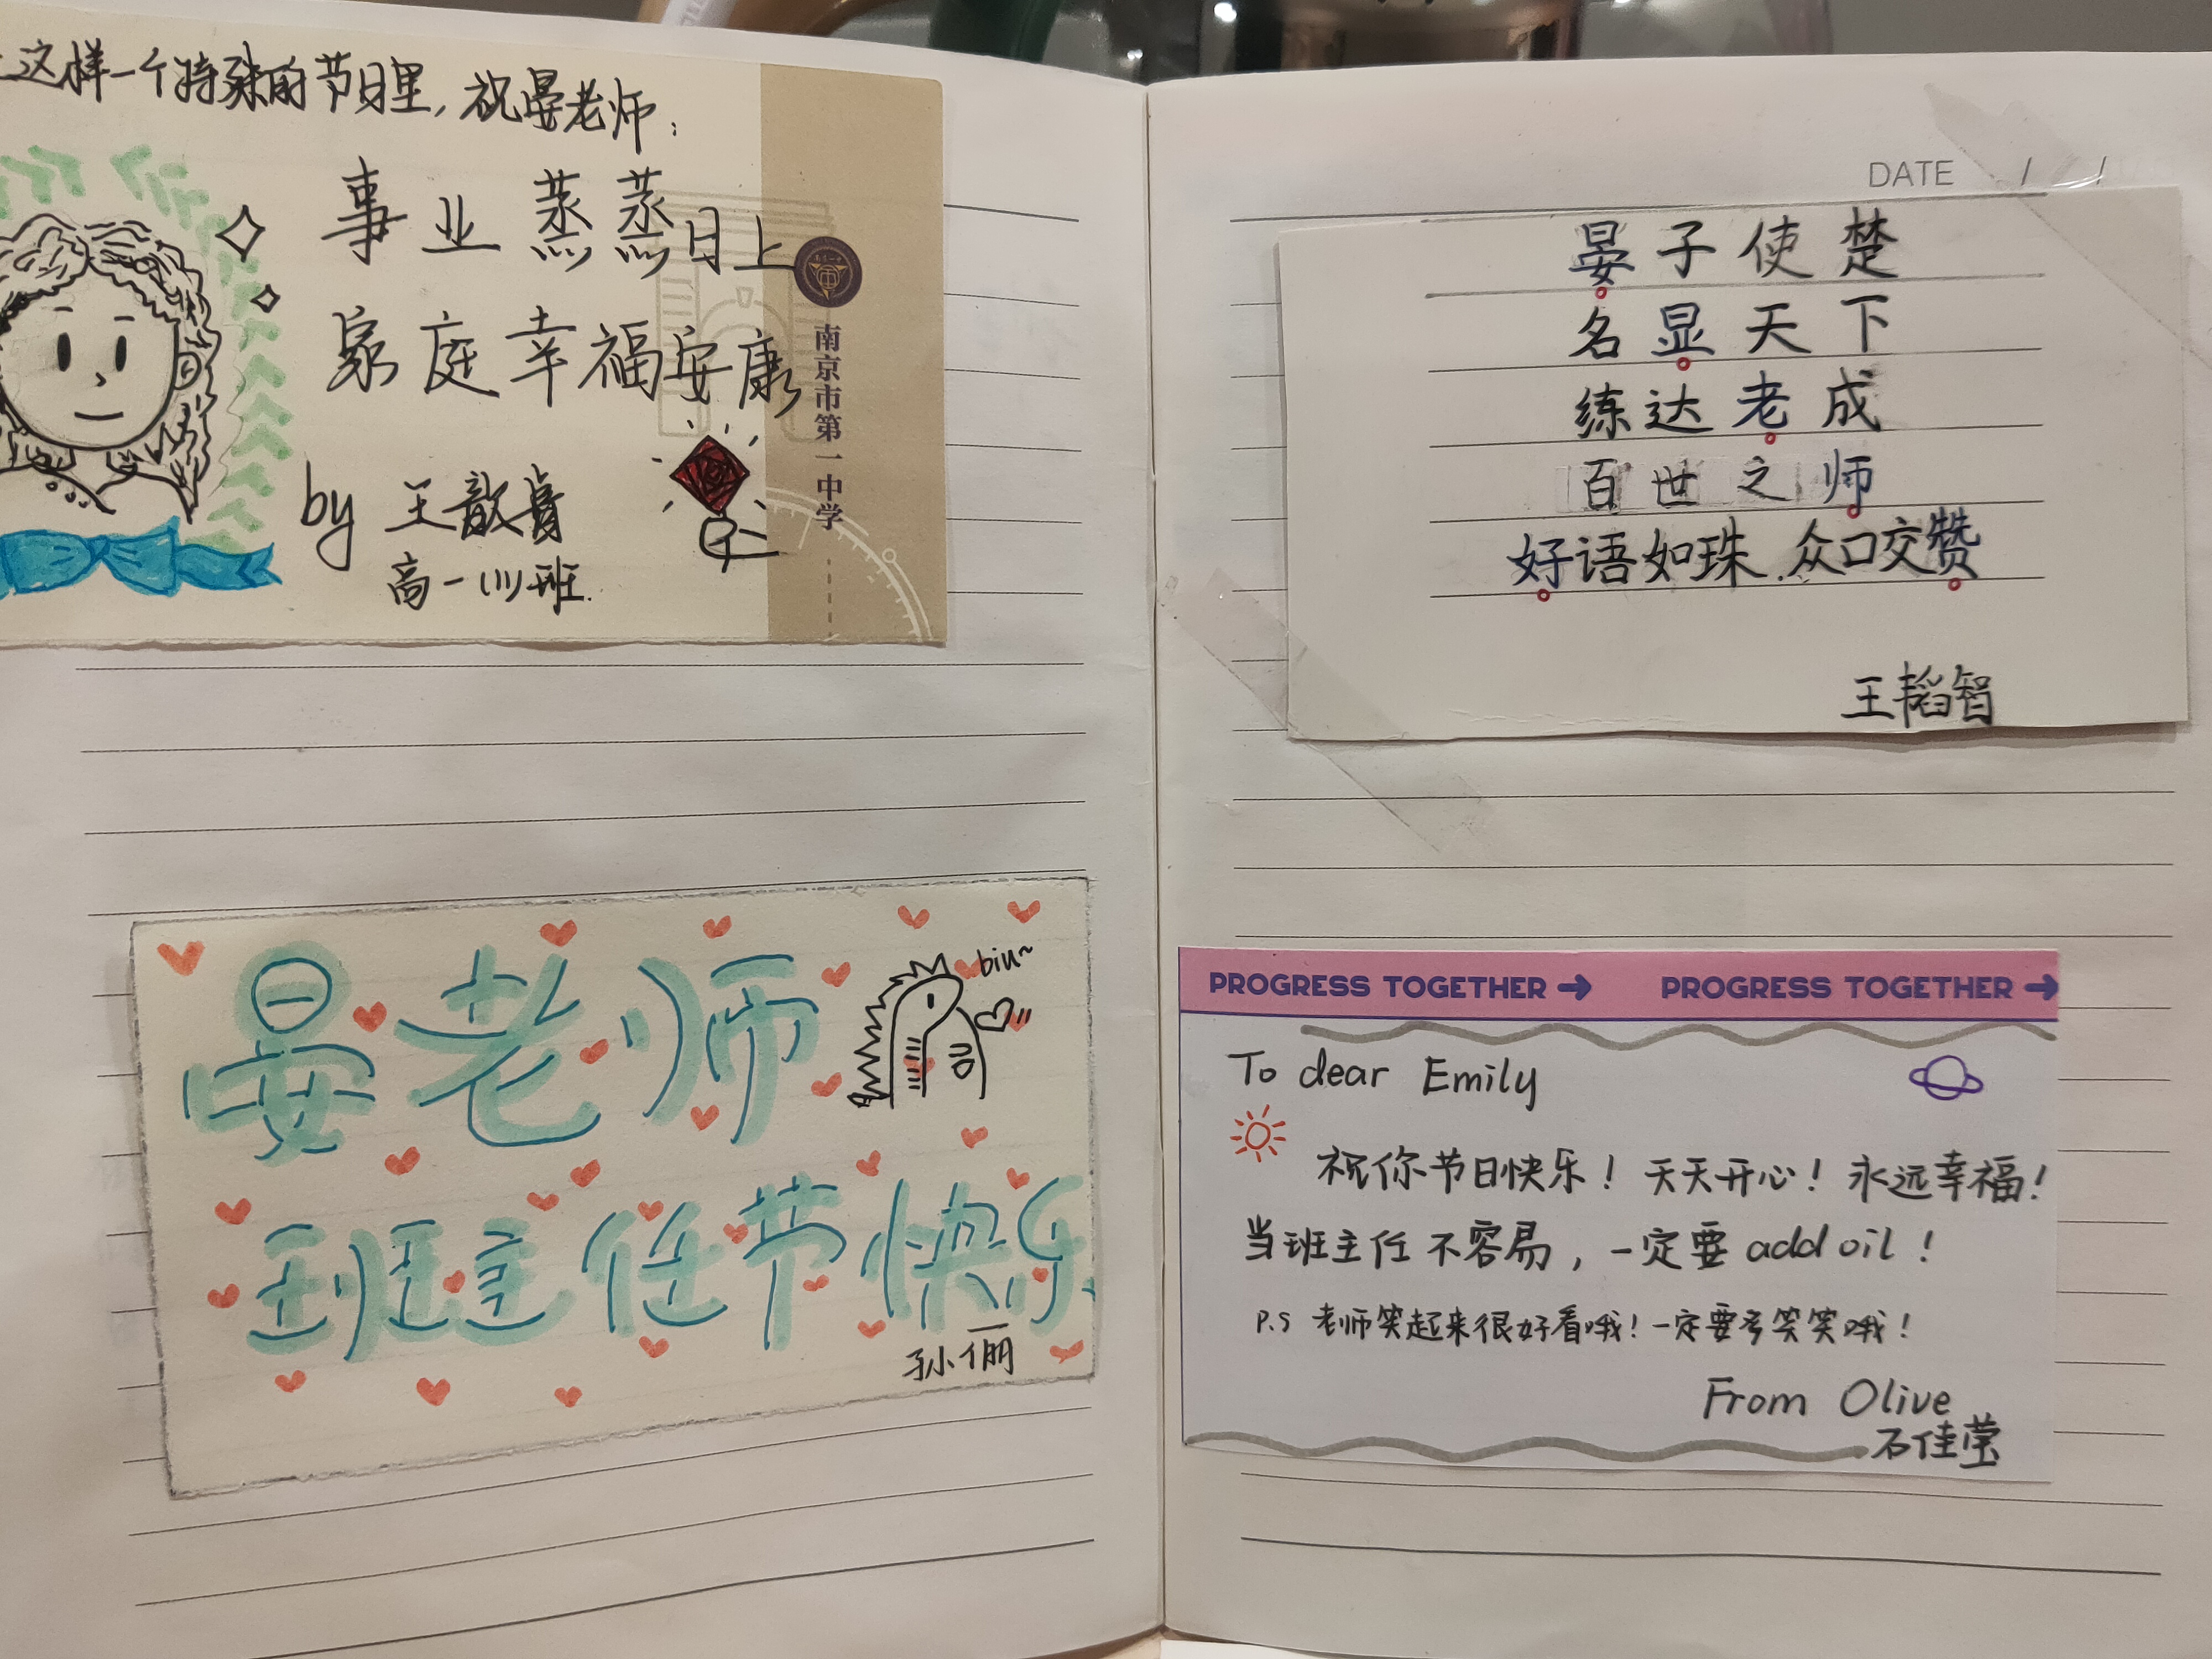 这样一个特殊的节日里，祝晏老师：
事业蒸蒸日上
家庭幸福安康
by 王歆
高一（11）班.
南京市第一中学
晏老师
biu~
班主任节快乐
孙俪
DATE / /
晏子使楚
名显天下
练达老成
百世之师
好语如珠.众口交赞
王韬智
PROGRESS TOGETHER → PROGRESS TOGETHER →
To dear Emily
祝你节日快乐！天天开心！永远幸福！
当班主任不容易，一定要 add oil！
P.S 老师笑起来很好看哦！一定要多笑笑哦！
From Olive
石佳莹